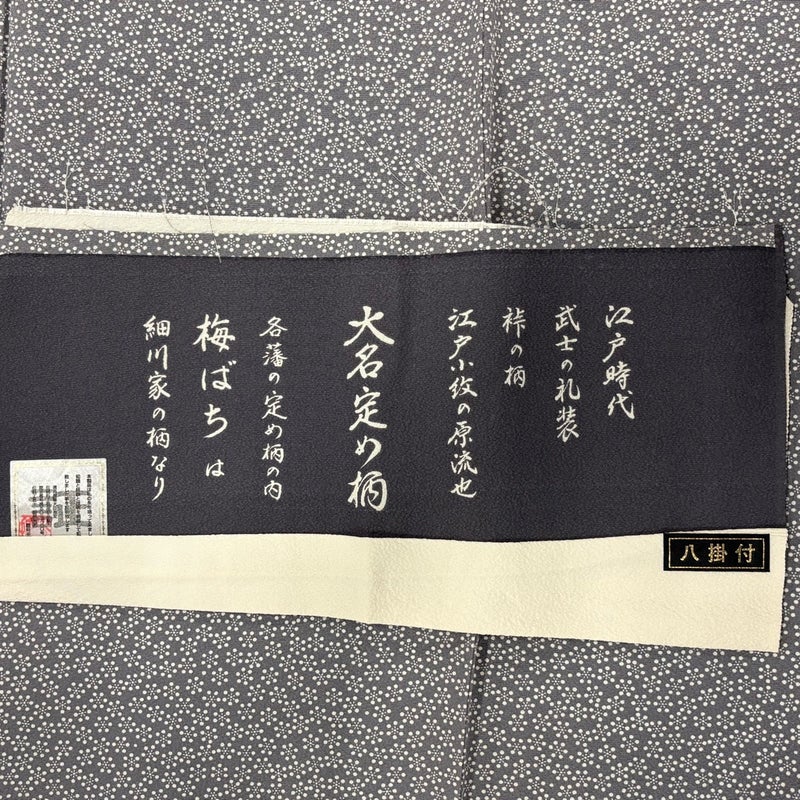 江戸時代
武士の礼装
裃の柄
江戸小紋の原流也
大名定め柄
各藩の定め柄の内
梅ばちは
細川家の柄なり
八掛付